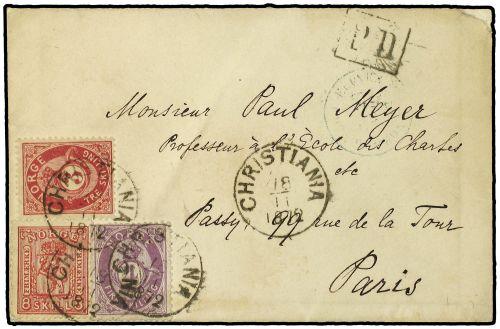 PD
Monsieur Paul Meyer
Professeur à l'École des Chartes
etc
Passy, 99 rue de la Tour
Paris
CHRISTIANIA
18
11
1872
NORGE
3
TRE SKILLING
8 SKILL 8
CHRISTIANIA
CHRISTIANIA